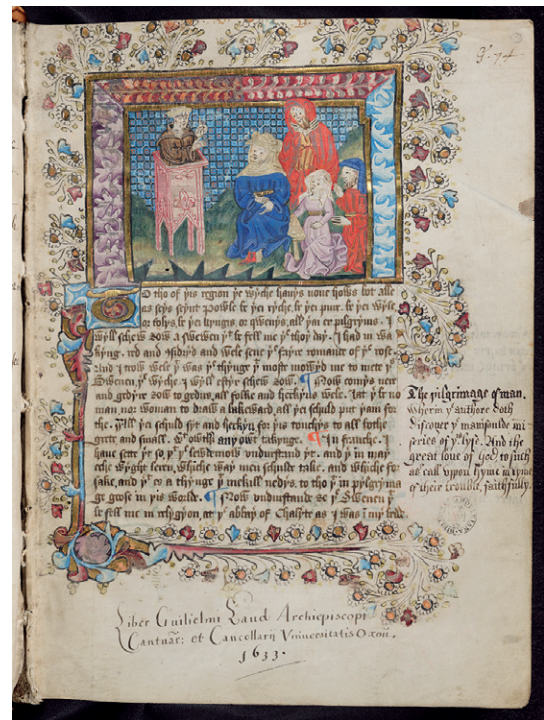 fº. 74
3
To tho of yis region ye wyche hauys none hows bot alle
as seys seynt Powle be yei ryche, be yei pure, be yei wyse
or folys, be yei kyngis or qwenys, all yai er pilgryms. I
wyll schew ȝow a sweuen yt be fell me yis thoy day. I had in wa
kyng, red and wele sene ye fayre romance of ye rose
And I trow wele yt yt was ye thynge yt moste mowyd me to mete ye
Sweuen, ye wyche I wyll eftyr schew ȝow. ¶ Now comys nere
and gedyr ȝow to gedyr, all folke and herkyns wele. lat yr be no
man nor woman to draw a bakeward, all yei schuld put yam for
the. All yei schuld syt and herkyn for yis touchys to all bothe
grete and small. Wt owtyn any owt takynge. ¶ In franche. I
haue sette yt so, yt yt lewdemen vndurstand yt. and yt in may
eche wyght leren, whiche way men schuld take. and whiche for
sake, and yt es a thynge yt mekill nedys, to tho yt in pylgryma
ge gose in yis worlde. ¶ Now vndurstande ye sweuen yt
be fell me in relygyon, at ye abbay of Chalyce as I was in my bedd.
The pilgrimage of man.
Wherin ye authore doth
discouer ye manifolde mi-
series of ys lyfe. And the
great loue of god to such
as call vpon hyme in tyme
of their trouble, faithfully.
Liber Guilielmi Laud Archiepiscopi
Cantuar: et Cancellarij Vniuersitatis Oxon.
1633.